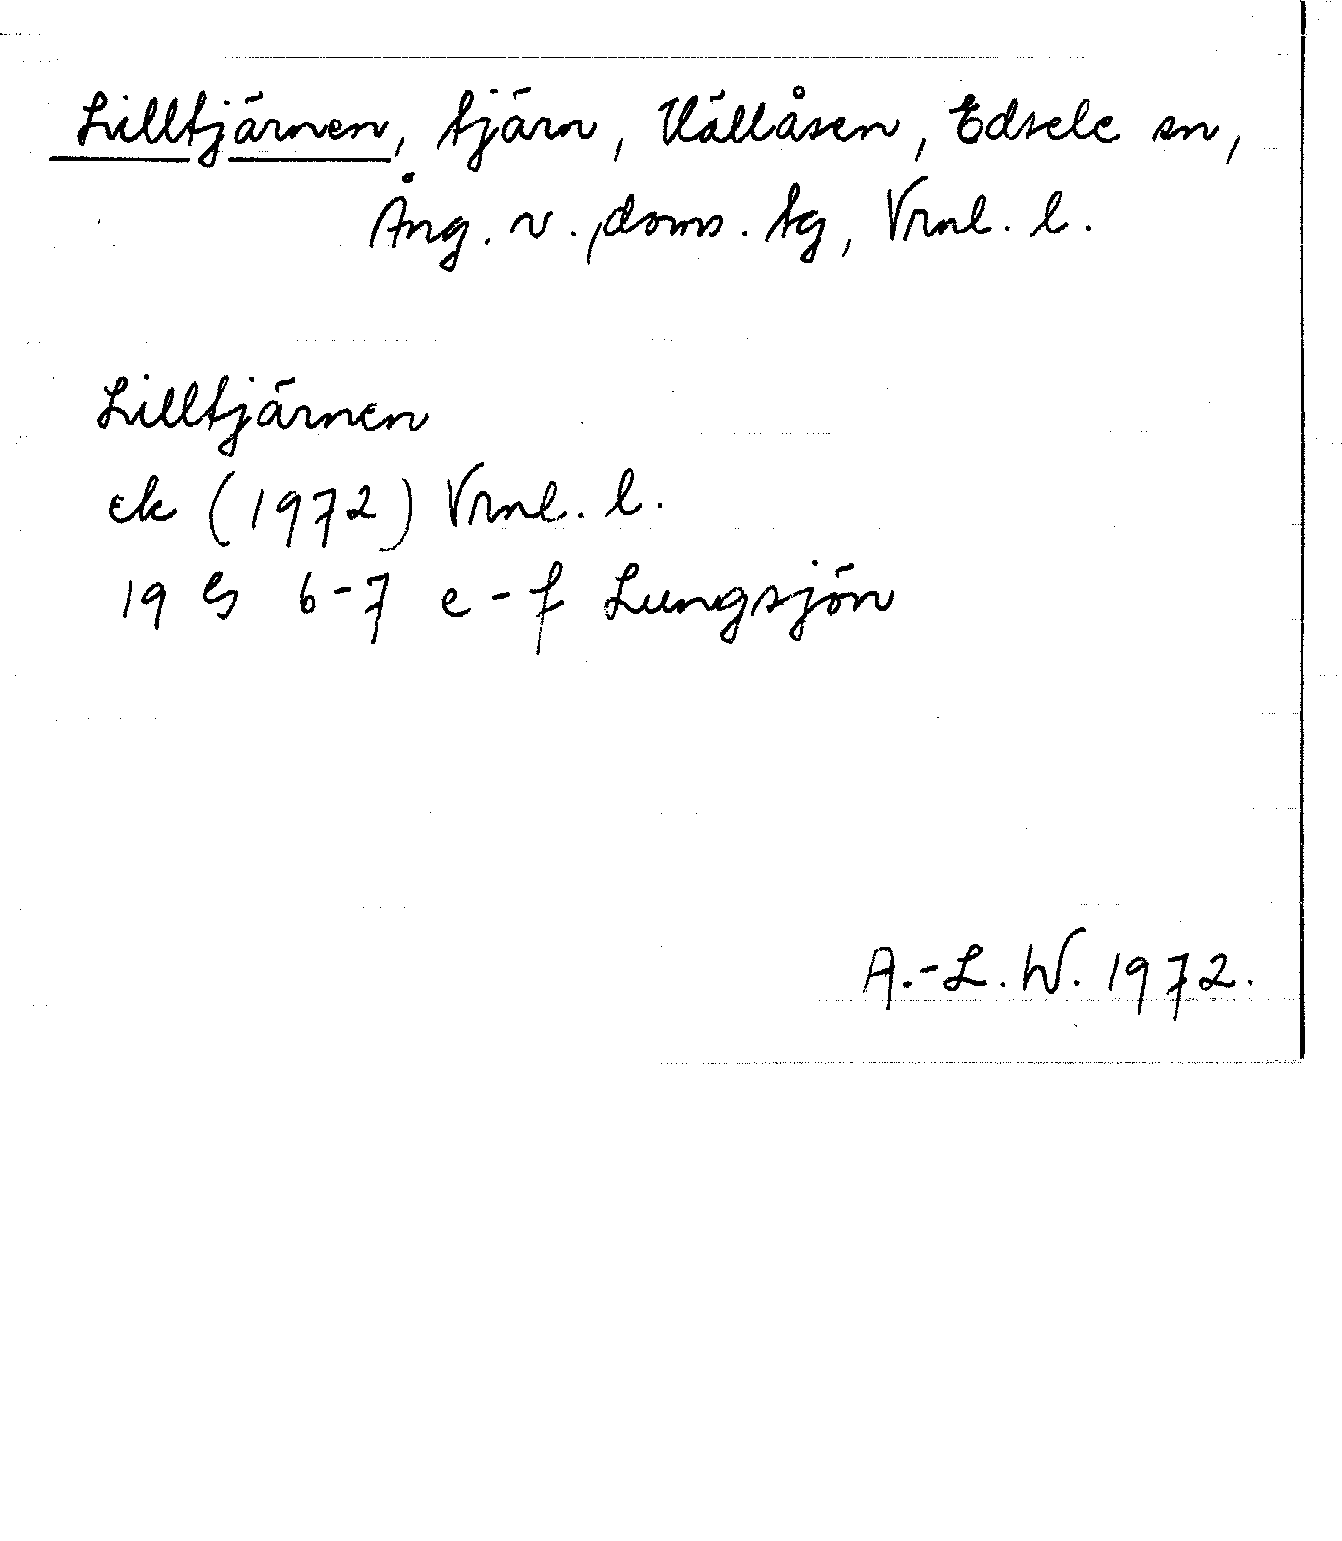 Lilltjärnen, tjärn, Vällåsen, Edsele sn,
Ång. v. doms. tg, Vrnl. l.
Lilltjärnen
ek (1972) Vrnl. l.
19 G 6-7 e-f Lungsjön
A.-L. W. 1972.